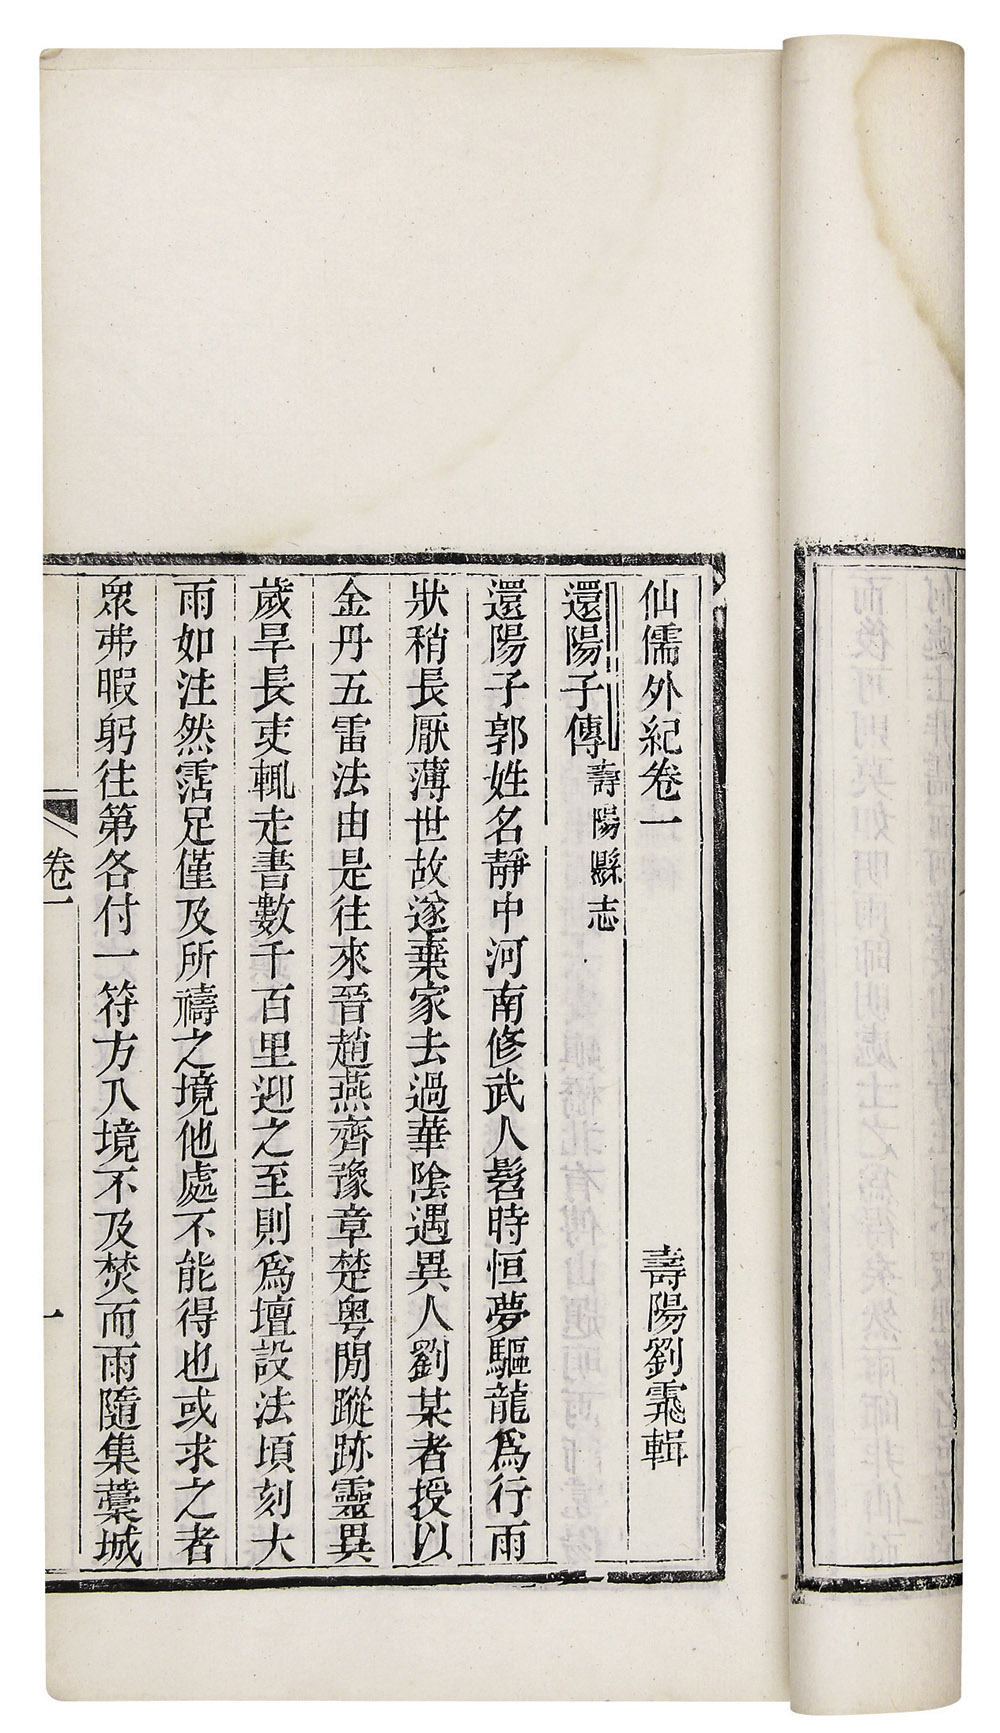 仙儒外紀卷一
壽陽劉霏輯
還陽子傳 壽陽縣志
還陽子郭姓名靜中河南修武人髫時恒夢驅龍爲行雨
狀稍長厭薄世故遂棄家去過華陰遇異人劉某者授以
金丹五雷法由是往來晉趙燕齊豫章楚粵閒蹤跡靈異
歲旱長吏輒走書數千百里迎之至則爲壇設法頃刻大
雨如注然霑足僅及所禱之境他處不能得也或求之者
衆弗暇躬往第各付一符方入境不及焚而雨隨集藁城
卷一
一